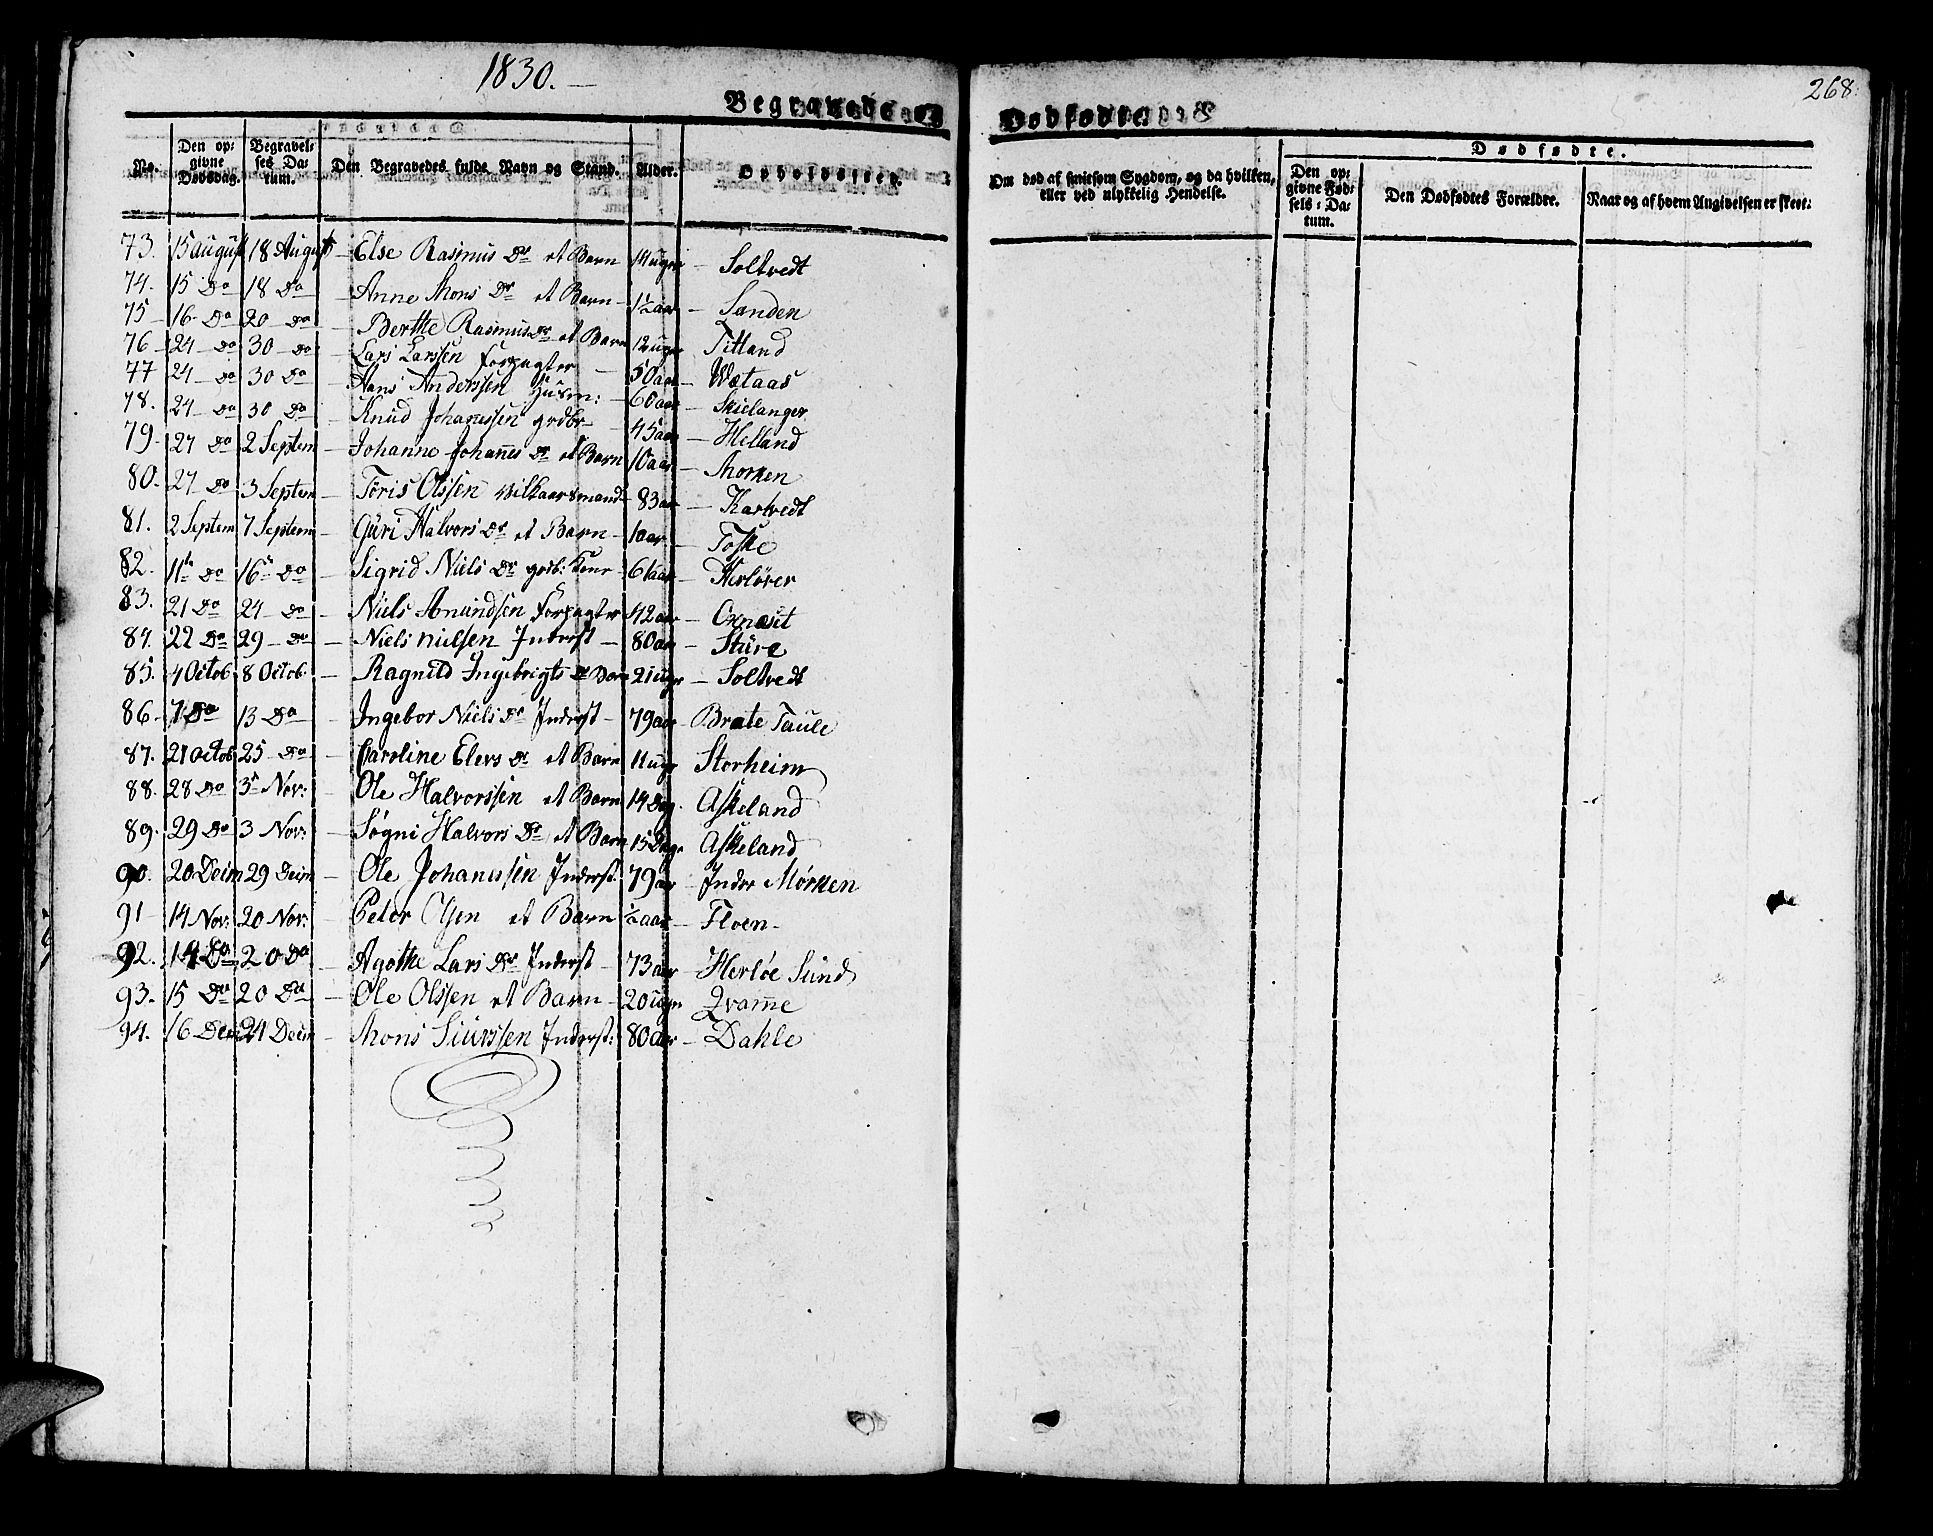 1830.
268
Begravede og Dødfødte.
No. | Den opgivne Dødsdag. | Begravelses Datum. | Den Begravedes fulde Navn og Stand. | Alder. | Opholdssted. | Om død af smitsom Sygdom, og da hvilken, eller ved ulykkelig Hendelse. | Dødfødte. | Den opgivne Fødsels-Datum. | Den Dødfødtes Forældre. | Naar og af hvem Angivelsen er skeet.
73. 15 august 18 August – Else Rasmus Dr et Barn 14 uger – Soltvedt
74. 15 Do 18 Do – Anne Mons Dr et Barn – 1½ aar – Sanden
75 16 Do 20 Do – Berthe Rasmus Dr et Barn 12 uger – Titland
76 24 Do 30 Do – Lars Larssen Forpagter – 50 aar – Wætaas
77 24 Do 30 Do – Hans Anderssen Husm: – 60 aar – Skielanger
78. 24 Do 30 Do – Knud Johanssen grdbr – 45 aar – Helland
79. 27 Do 2 Septem – Johanne Johannes Dr et Barn 10 aar – Morken
80. 27 Do 3 Septem – Toris Olssen vilkaarsmand 83 aar – Kartvedt
81. 2 Septem 7 Septem – Guri Halvors Dr et Barn – 1 aar – Toske
82. 11te Do 16 Do – Sigrid Niels Dr grdb: Kone – 61 aar – Herlöver
83. 21 Do 24 Do – Niels Amundsen Forpagter 42 aar –
84. 22 Do 29 Do – Niels Nielsen Inderst – 80 aar – Sture
85. 4 Octob 8 Octob. – Ragnild Ingebrigts Dr Barn 21 uger – Soltvedt
86. 7 Do 13 Do – Ingebor Niels Dr Inderst – 79 aar – Brate Taule
87. 21 octob 25 Do – Caroline Elers Dr et Barn 11 uger Storheim
88. 28 Do 3 Nov: – Ole Halvorssen et Barn 14 Dag. Askeland
89. 29 Do 3 Nov: – Søgni Halvors Dr et Barn 15 Dage Askeland
90. 20 Deim 29 Deim – Ole Johannssen Inderst. 79 aar – Indre Mørken
91 14 Nov: 20 Nov: – Peter Olsen et Barn ½ aar – Floen –
92. 14 Do 20 Do – Agothe Lars Dr Inderst – 73 aar – Herløe Sund
93. 15 Do 20 Do – Ole Olssen et Barn – 20 uger – Qvamme
94. 16 Deim 21 Deim – Mons Siurssen Inderst: 80 aar – Dahle